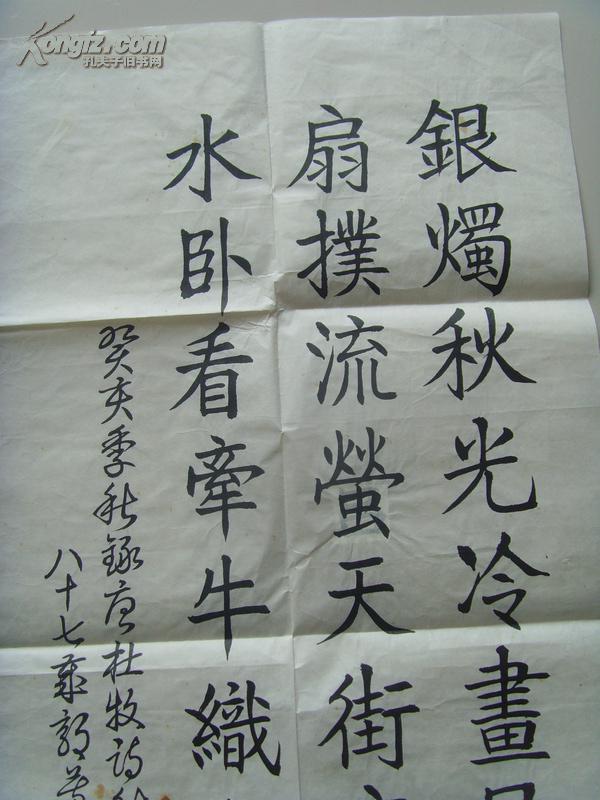 銀燭秋光冷畫
扇撲流螢天街
水卧看牽牛織
癸亥季秋錄唐杜牧詩秋
八十七叟郭
Kongfz.com
孔夫子旧书网